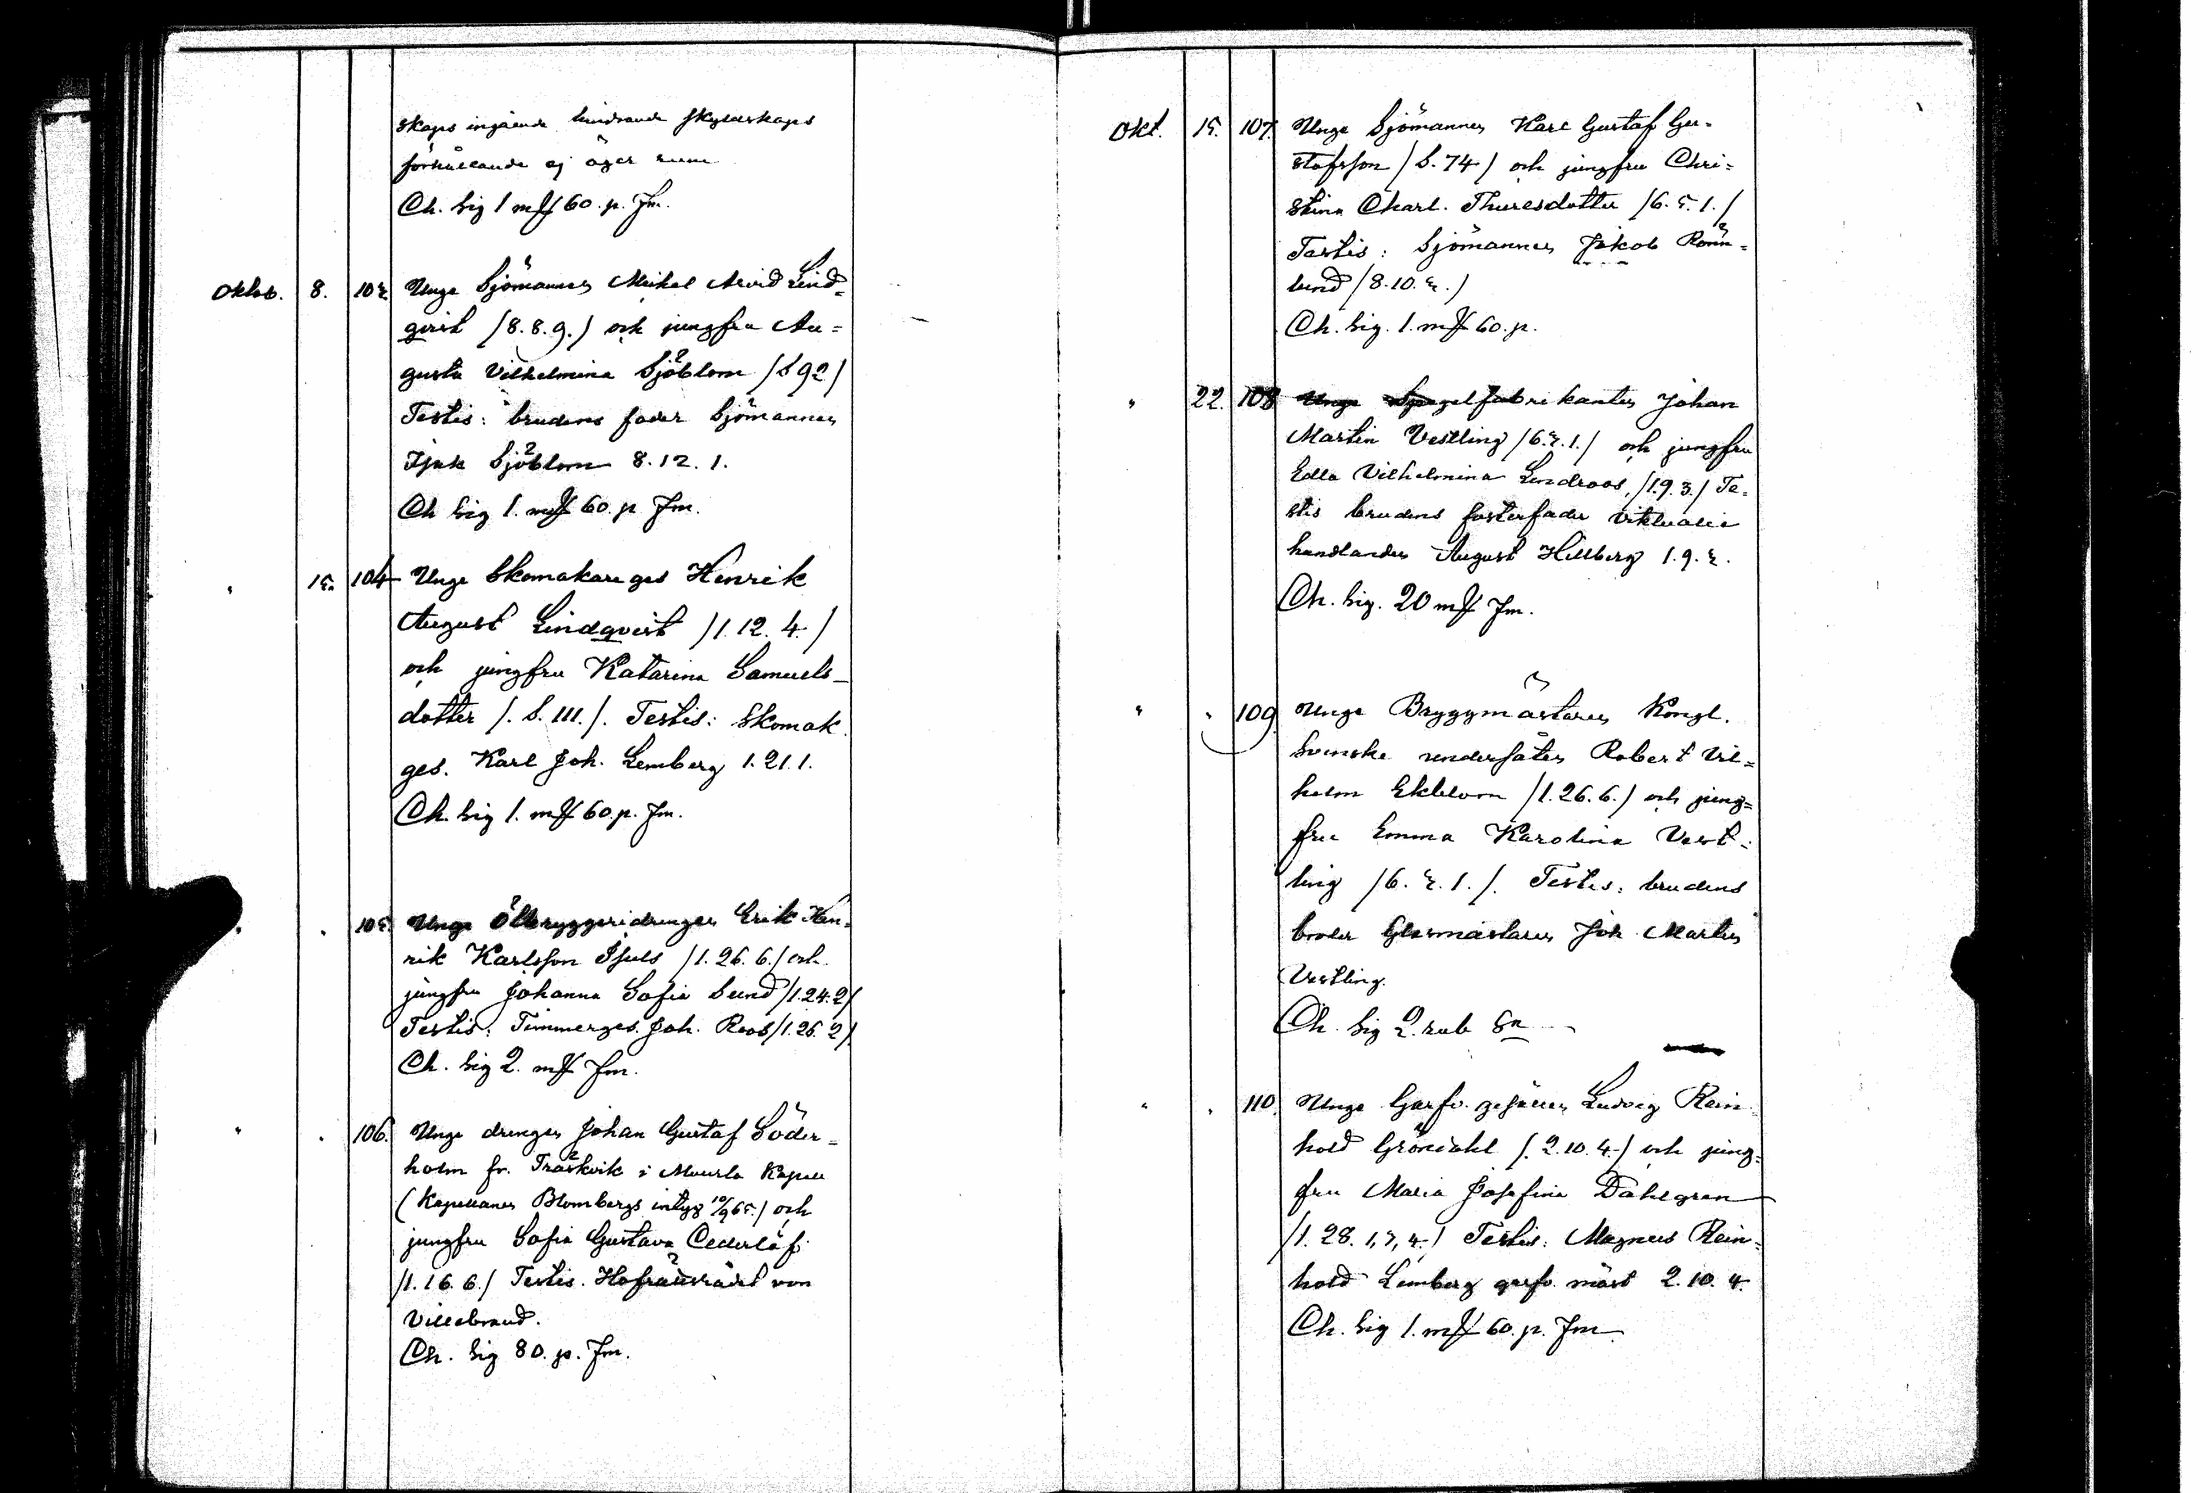 skaps ingående hindrande skyldskaps
förhållande ej äger rum
Ch. Sig 1 mk 60. p. Fm.
Oktob. 8. 103. Unge Sjömannen Mikel Arvid Lind=
qvist /8.8.9./ och jungfru Au=
gusta Vilhelmina Sjöblom /S 92/
Testis: brudens fader Sjömannen
Isak Sjöblom 8.12.1.
Ch Sig 1. mk 60. p Fm.
" 15. 104 Unge Skomakare ges Henrik
August Lindqvist /1.12.4./
och jungfru Katarina Samuels-
dotter /. S. 111./. Testis: Skomak.
ges. Karl Joh. Lemberg 1.21.1.
Ch. Sig 1. mk 60. p. Fm.
" " 105. Unge Ölbryggeridrengen Erik Hen=
rik Karlsson Isuls /1.26.6./ och
jungfru Johanna Sofia Sund /1.24.2/
Testis: Timmerges. Joh. Roos /1.26.2/.
Ch. Sig 2. mk Fm.
" " 106. Unge drengen Johan Gustaf Söder=
holm fr. Träskvik i Muurla Kapell
(Kapellanen Blombergs intyg 10/9 65.) och
jungfru Sofia Gustava Cederlöf
/1.16.6./ Testis. Hofrättsrådet von
Villebrand.
Ch. Sig 80. p. Fm.
Okt. 15. 107. Unge Sjömannen Karl Gustaf Gu=
stafsson /S. 74/ och jungfru Chri=
stina Charl. Thuresdotter /6.5.1./
Testis: Sjömannen Jakob Rönn=
lund /8.10.5./
Ch. Sig. 1. mk 60. p.
" 22. 108 Unge Spegelfabrikanten Johan
Martin Vestling /6.5.1./ och jungfru
Edla Vilhelmina Lindroos, /1.9.3./ Te=
stis brudens fosterfader viktualie
handlanden August Hillberg 1.9.5.
Ch. Sig. 20 mk Fm.
" " 109 Unge Bryggmästaren Kongl.
Svenske undersåten Robert Vil=
helm Ekblom /1.26.6./ och jung=
fru Emma Karolina Vest=
ling /6.5.1./. Testis: brudens
broder Glasmästaren Joh. Martin
Vestling.
Ch. Sig 2. rub Sr
" " 110. Unge Garfv. gesällen Ludvig Rein
hold Gröndahl /. 2.10.4./ och jung=
fru Maria Josefina Dahlgren
/1.28.1,3,4./ Testis: Magnus Rein=
hold Lemberg garfv. mäst 2.10.4.
Ch. Sig 1. mk 60. p. Fm